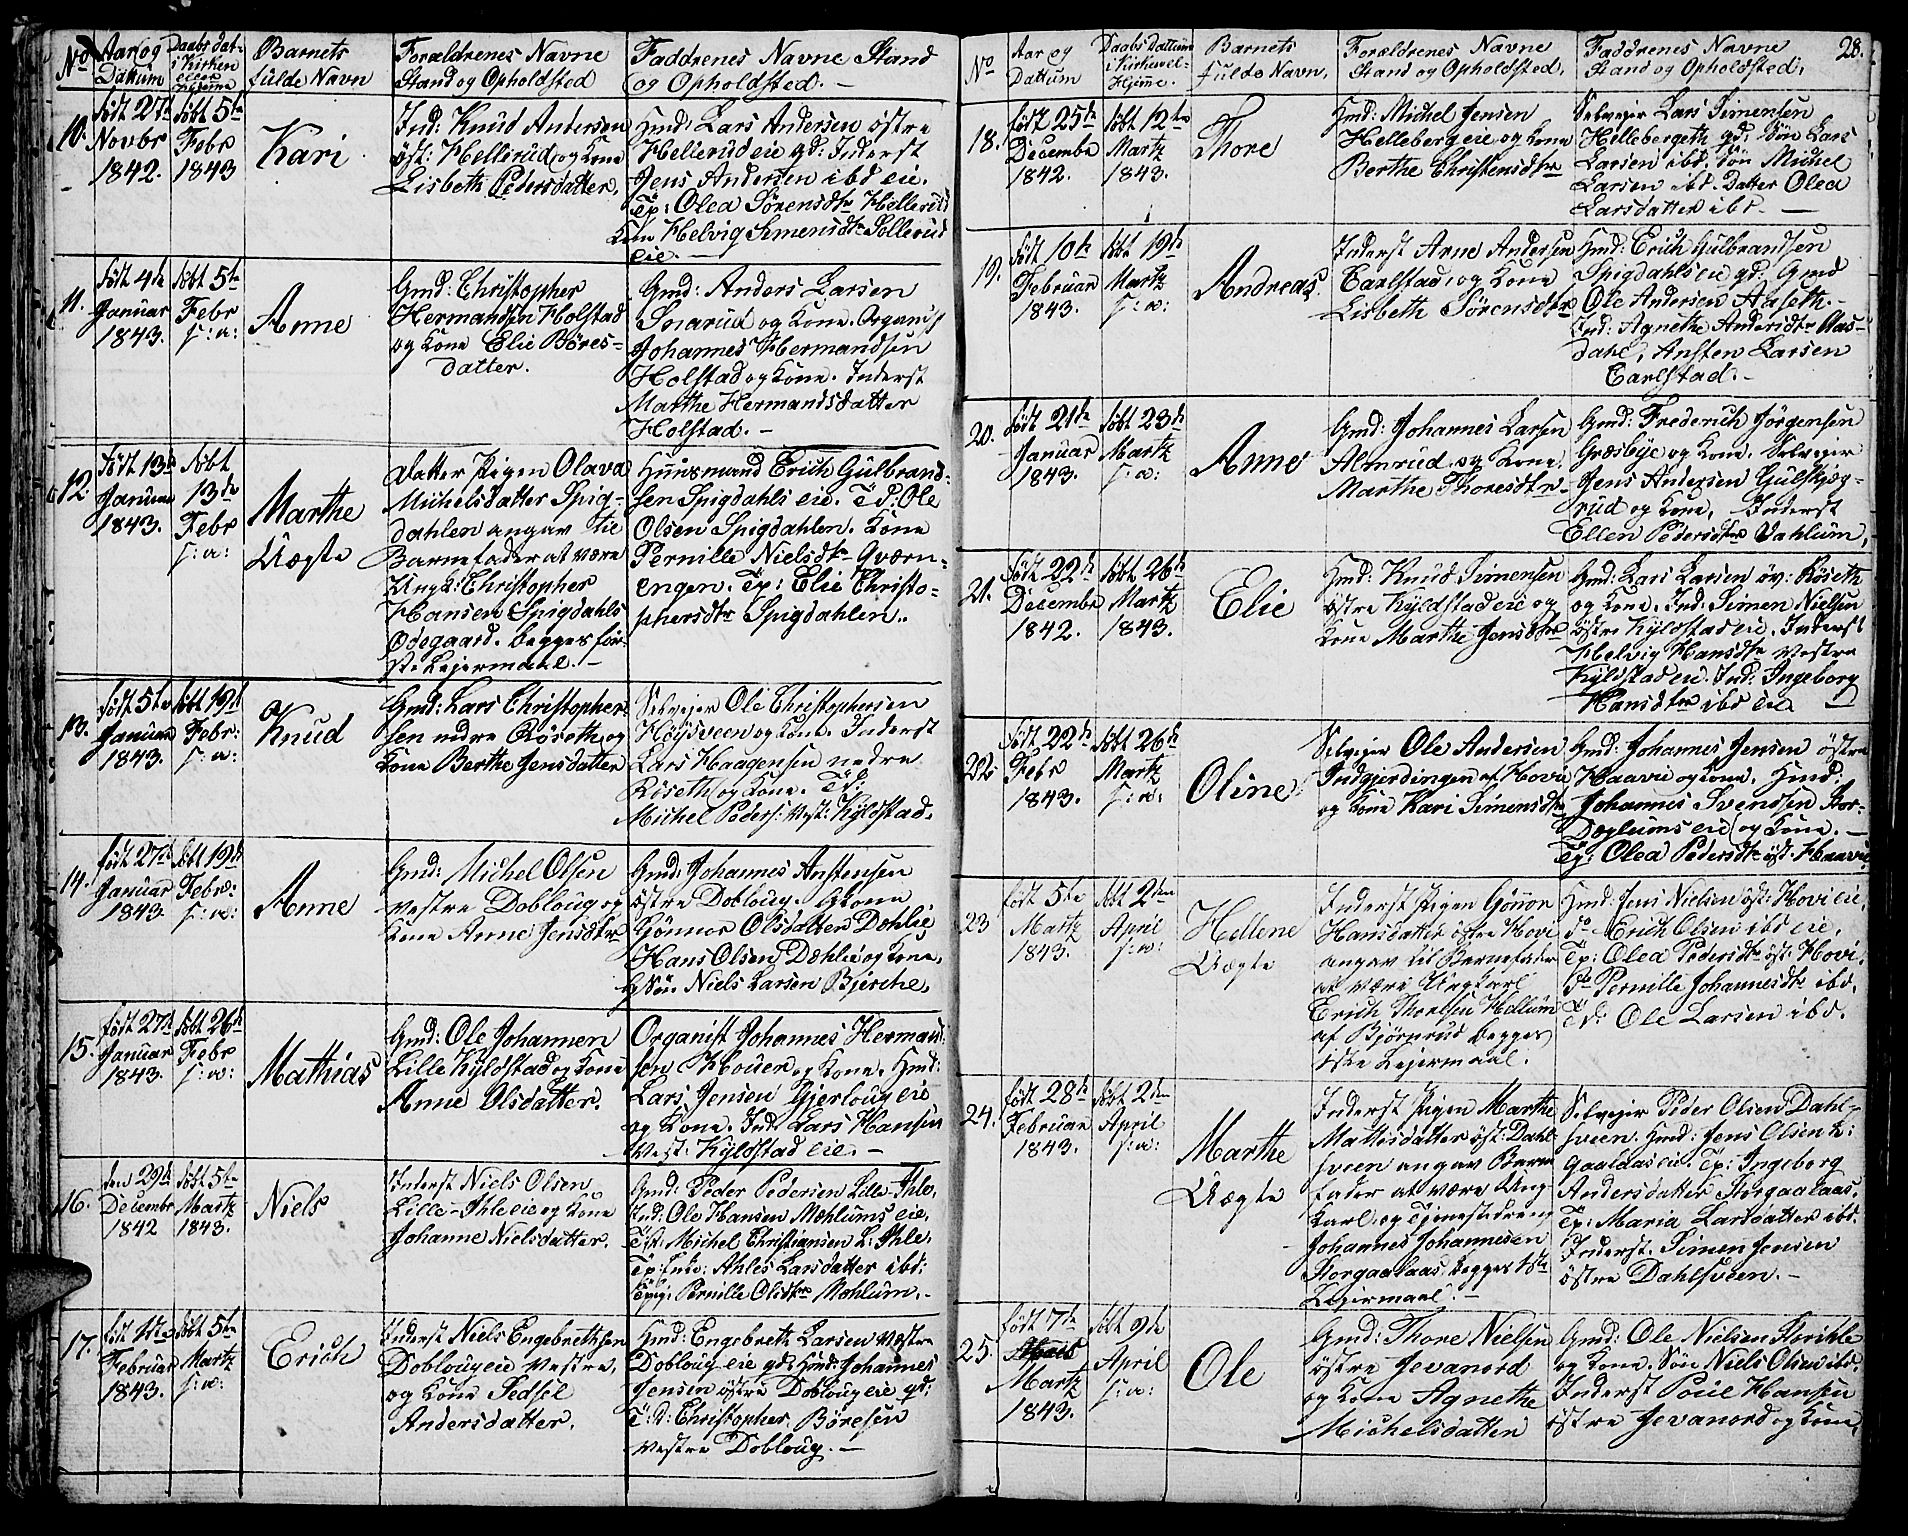 No
Aar og
Dattum
Daabs dat.
i Kirken
eller
Hjeme
Barnets
fulde Navn
Forældrenes Navne
Stand og Opholdsted
Faddrenes Navne Stand
og Opholdsted. –
10.
født 27de
Novbr
1842.
døbt 5te
Febr
1843
Kari
Ind: Knud Andersen
øst: Hellerud og Kone
Lisbeth Pedersdatter.
Hmd: Lars Andersen østre
Hellerud eie gd: Inderst
Jens Andersen ibd eie.
Tp: Olea Sørensdtr Hellerud
Kone Helvig Simensdtr Sollerud
eie. –
11.
født 4de
Januar
1843.
døbt 5te
Febr
s: a:
Anne
Gmd: Christopher
Hermandsen Holstad
og Kone Elie Børes-
datter.
Gmd: Anders Larsen
Snarud og Kone. Organist
Johannes Hermandsen
Holstad og Kone. Inderst
Marthe Hermandsdatter
Holstad. –
12.
født 13de
Januar
1843.
døbt
13de
Febr
s: a:
Marthe
Uægte
datter Pigen Olava
Michelsdatter Spig-
dahlen angav til
Barnefader at være
Ungk: Christopher
Hansen Spigdahls
Ødegaard. begges før-
ste Lejermaal. –
Huusmand Erich Gulbrand-
sen Spigdahls eie. Td: Ole
Olsen Spigdahlen. Kone
Pernille Nielsdtr Qværn-
engen. Tp: Elie Christo-
phersdtr Spigdahlen.
13.
født 5te
Januar
1843.
døbt 19de
Febr:
s: a:
Knud
Gmd: Lars Christopher-
sen nedre Røseth og
Kone Berthe Jensdatter
Selvejer Ole Christophersen
Høysveen og Kone. Inderst
Lars Haagensen nedre
Røseth og Kone. Td:
Michel Peders: Vest: Kyldstad.
14.
født 27de
Januar
1843
døbt 19de
Febr:
s: a:
Anne
Gmd: Michel Olsen
vestre Dobloug og
Kone Anne Jensdtr
Gmd: Johannes Anstensen
østre Dobloug. Gkone
Gønnor Olsdatter Dæhlie
Hans Olsen Dæhlie og Kone,
GSøn Niels Larsen Bjerche,
15.
født 27de
Januar
1843.
døbt 26de
Febr
s: a:
Mathias
Gmd: Ole Johannen
Lille Kyldstad og Kone
Anne Olsdatter.
Organist Johannes Hermand-
sen Houer og Kone. Hmd:
Lars Jensen Gjerloug eie
og Kone. Ind: Lars Hansen
Vest: Kyldstad eie. –
16.
den 29de
Decembr
1842
døbt 5te
Martz
1843.
Niels
Inderst Niels Olsen
Lille-Ihle eie og Kone
Johanne Nielsdatter.
Gmd: Peder Pedersen Lille-Ihle,
Ind: Ole Hansen Mæhlums eie,
Michel Christiansen L: Ihle,
Ahles Larsdatter ibd:
Pernille Olsdtr Mæhlum. –
17.
født 11te
Februar
1843.
døbt 5te
Martz
s: a:
Erich
Inderst Niels Engebrethsen
Dobloug eie vestre,
og Kone Sedsel
Andersdatter.
Hmd: Engebreth Larsen Væstre
Dobloug eie gd: Hmd: Johannes
Jensen østre Dobloug eie gd:
T: D: Christopher Børesen
vestre Dobloug. –
No
Aar og
Dattum
Daabs Dattum
i Kirke vel-
Hjeme.
Barnets
fulde Navn.
Forældrenes Navne
Stand og Opholdsted.
Faddrenes Navne
Stand og Opholdsted.
28.
18.
født 25de
Decembr
1842.
døbt 12te
Martz
1843.
Thore
Hmd: Michel Jensen
Helleberg eie og Kone
Berthe Christensdtr
Selvejer Lars Simensen
Helleberget gd: Søn Lars
Larsen ibd. Søn Michel
Larsen ibd. Datter Olea
Larsdatter ibd. –
19.
født 10de
Februar
1843.
døbt 19de
Martz
s: a:
Andreas
Inderst Arne Andersen
Carlstad, og Kone
Lisbeth Sørensdtr
Hmd: Erich Gulbrandsen
Spigdahls eie gd: Gmd
Ole Andersen Aaseth. –
Ind: Agnethe Andersdtr Aas-
dahl, Ansten Larsen
Carlstad. –
20.
født 21de
Januar
1843.
døbt 23de
Martz
s: a:
Anne
Gmd: Johannes Larsen
Almrud og Kone.
Marthe Thoresdtr
Gmd: Frederich Jørgensen
Græsbye og Kone. Selvejer
Jens Andersen Gulskjæg-
rud og Kone, Inderst
Ellen Pedersdtr Dahlum,
21.
født 22de
Decembr
1842.
døbt 26de
Martz
1843.
Elie
Hmd: Knud Simensen
østre Kyldstad eie og
Kone Marthe Jensdtr
Gmd: Lars Larsen øv: Røseth
og Kone. Ind: Simen Nielsen
østre Kyldstad eie. Inderst
Helvig Hansdtr Vestre
Kyldstad eie. Ind: Ingeborg
Hansdtr ibd eie –
22.
født 22de
Febr
1843.
døbt 26de
Martz
s: a:
Oline
Selvejer Ole Andersen
Indgjerdingen af Hovi
og Kone Kari Simensdtr
Gmd: Johannes Jensen østre
Haavie og Kone, Hmd:
Johannes Svendsen Stor-
Dæhlums eie og Kone. –
Tp: Olea Pedersdtr øst: Haavie
23
født 5te
Martz
1843.
døbt 2den
April
s: a:
Hellene
Uægte
Inderst Pigen Gønor
Hansdatter østre Hovi
angav til Barnefader
at være Ungkarl
Erich Thorsen Hellum
af Bjørnrud begges
1ste Lejermaal.
Hmd: Jens Nielsen øst: Hovi eie,
do Erich Olsen ibd eie,
Tp: Olea Pedersdtr øst: Hovi,
do Pernille Johannesdtr ibd.
Td: Ole Larsen ibd.
24.
født 28de
Februar
1843.
døbt 2den
April
s: a:
Marthe
Uægte
Inderst Pigen Marthe
Mattisdatter øst: Dahl-
sveen angav Barne
fader at være Ung-
karl og Tjenestedreng
Johannes Johannesen
Storgaalaas, begges 1ste
Lejermaal. –
Selvejer Peder Olsen Dahl-
sveen. Hmd: Jens Olsen L:
Gaalaas eie. Tp: Ingeborg
Andersdatter Storgaalaas.
Tp: Maria Larsdatter ibd.
Inderst. Simen Jensen
østre Dahlsveen. –
25.
født 7de
Martz
1843.
døbt 9de
April
s: a:
Ole
Gmd: Thore Nielsen
østre Jevanord
og Kone Agnethe
Michelsdatter
Gmd: Ole Nielsen Storihle
og Kone. Søn Niels Olsen ibd.
Inderst Poul Hansen
østre Jevanord og Kone,